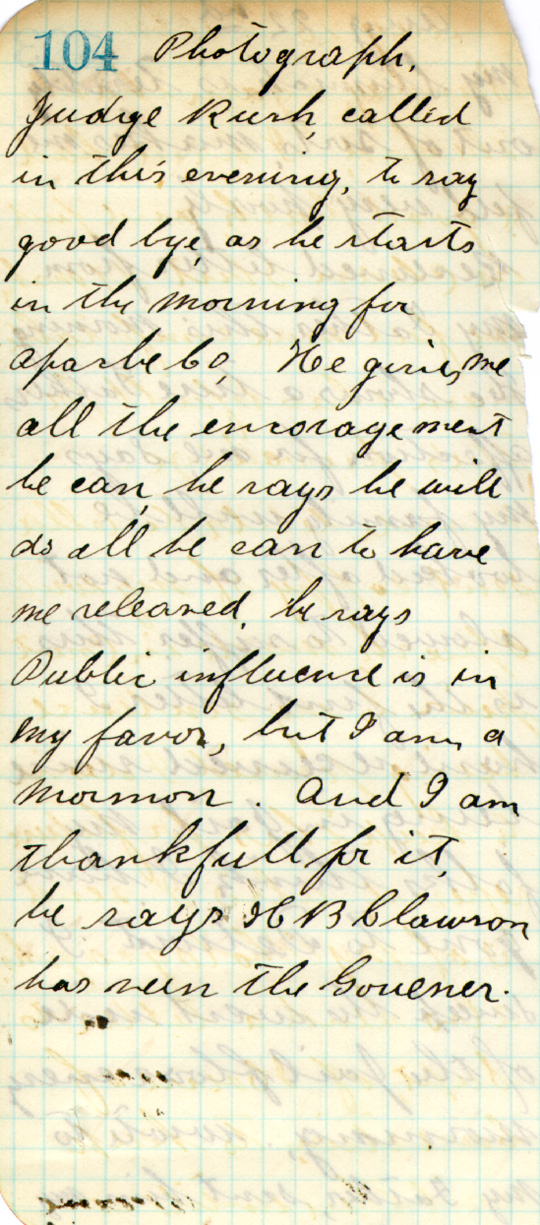 104 Photograph.
Judge Rush, called
in this evening, to say
good bye, as he starts
in the morning for
Apache Co, He gives, me
all the encoragement
he can, he says he will
do all he can to have
me released, he says
Public influence is in
my favor, but I am, a
mormon. And I am
thankfull for it,
he says H B Clawson
has seen the Govener.